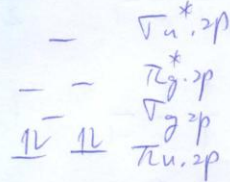 σu*.2p
πg*.2p
σg 2p
⇅ ⇅ πu.2p